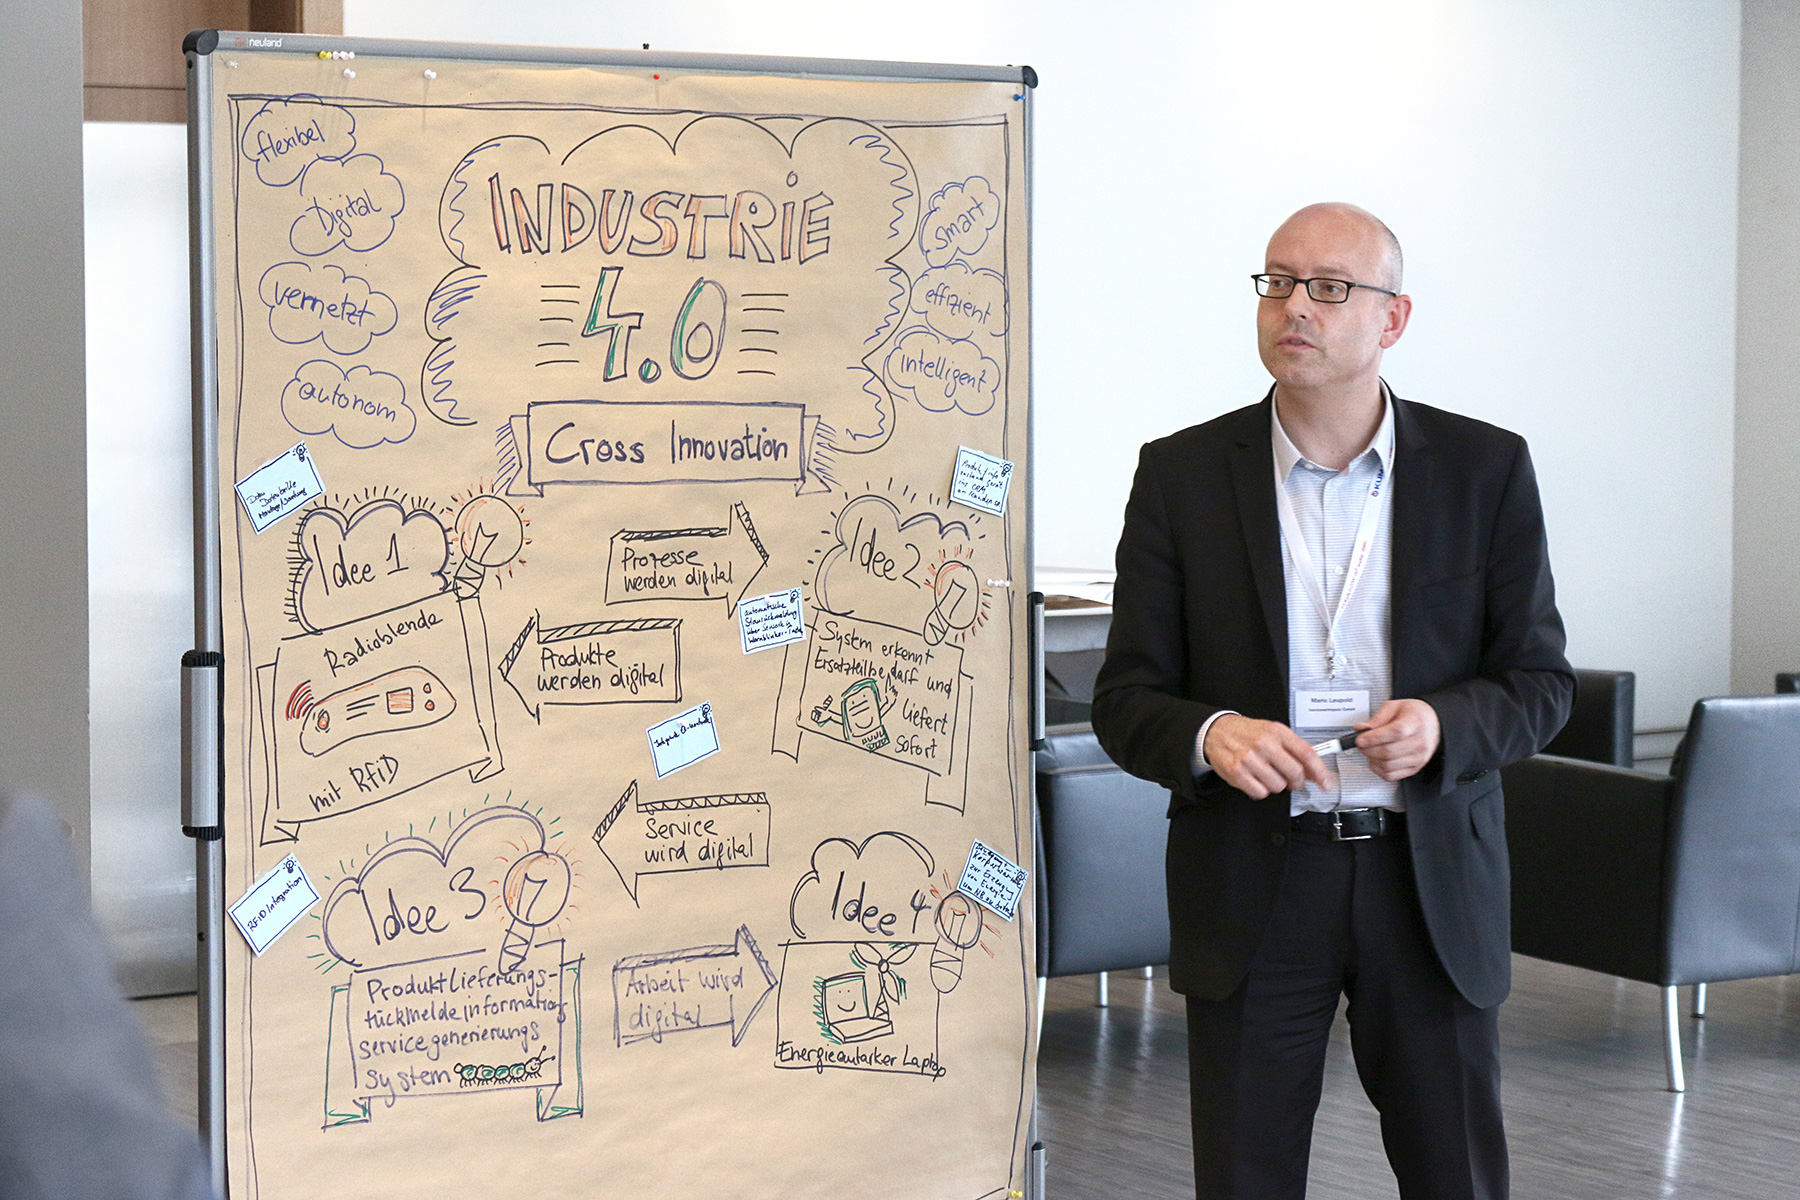 neuland
flexibel
Digital
vernetzt
autonom
INDUSTRIE
4.0
Cross Innovation
smart
effizient
intelligent
Idee 1
Radioblende
mit RFiD
Prozesse
werden digital
Produkte
werden digital
automatische
über
Idee 2
System erkennt
Ersatzteilbedarf und
liefert
sofort
Service
wird digital
RFiD Integration
Idee 3
Produktlieferungs-
rückmeldeinformations
servicegenerierungs
system
Arbeit wird
digital
Idee 4
zur Erzeugung
von Energie
Energieautarker Laptop
Mario Leupold